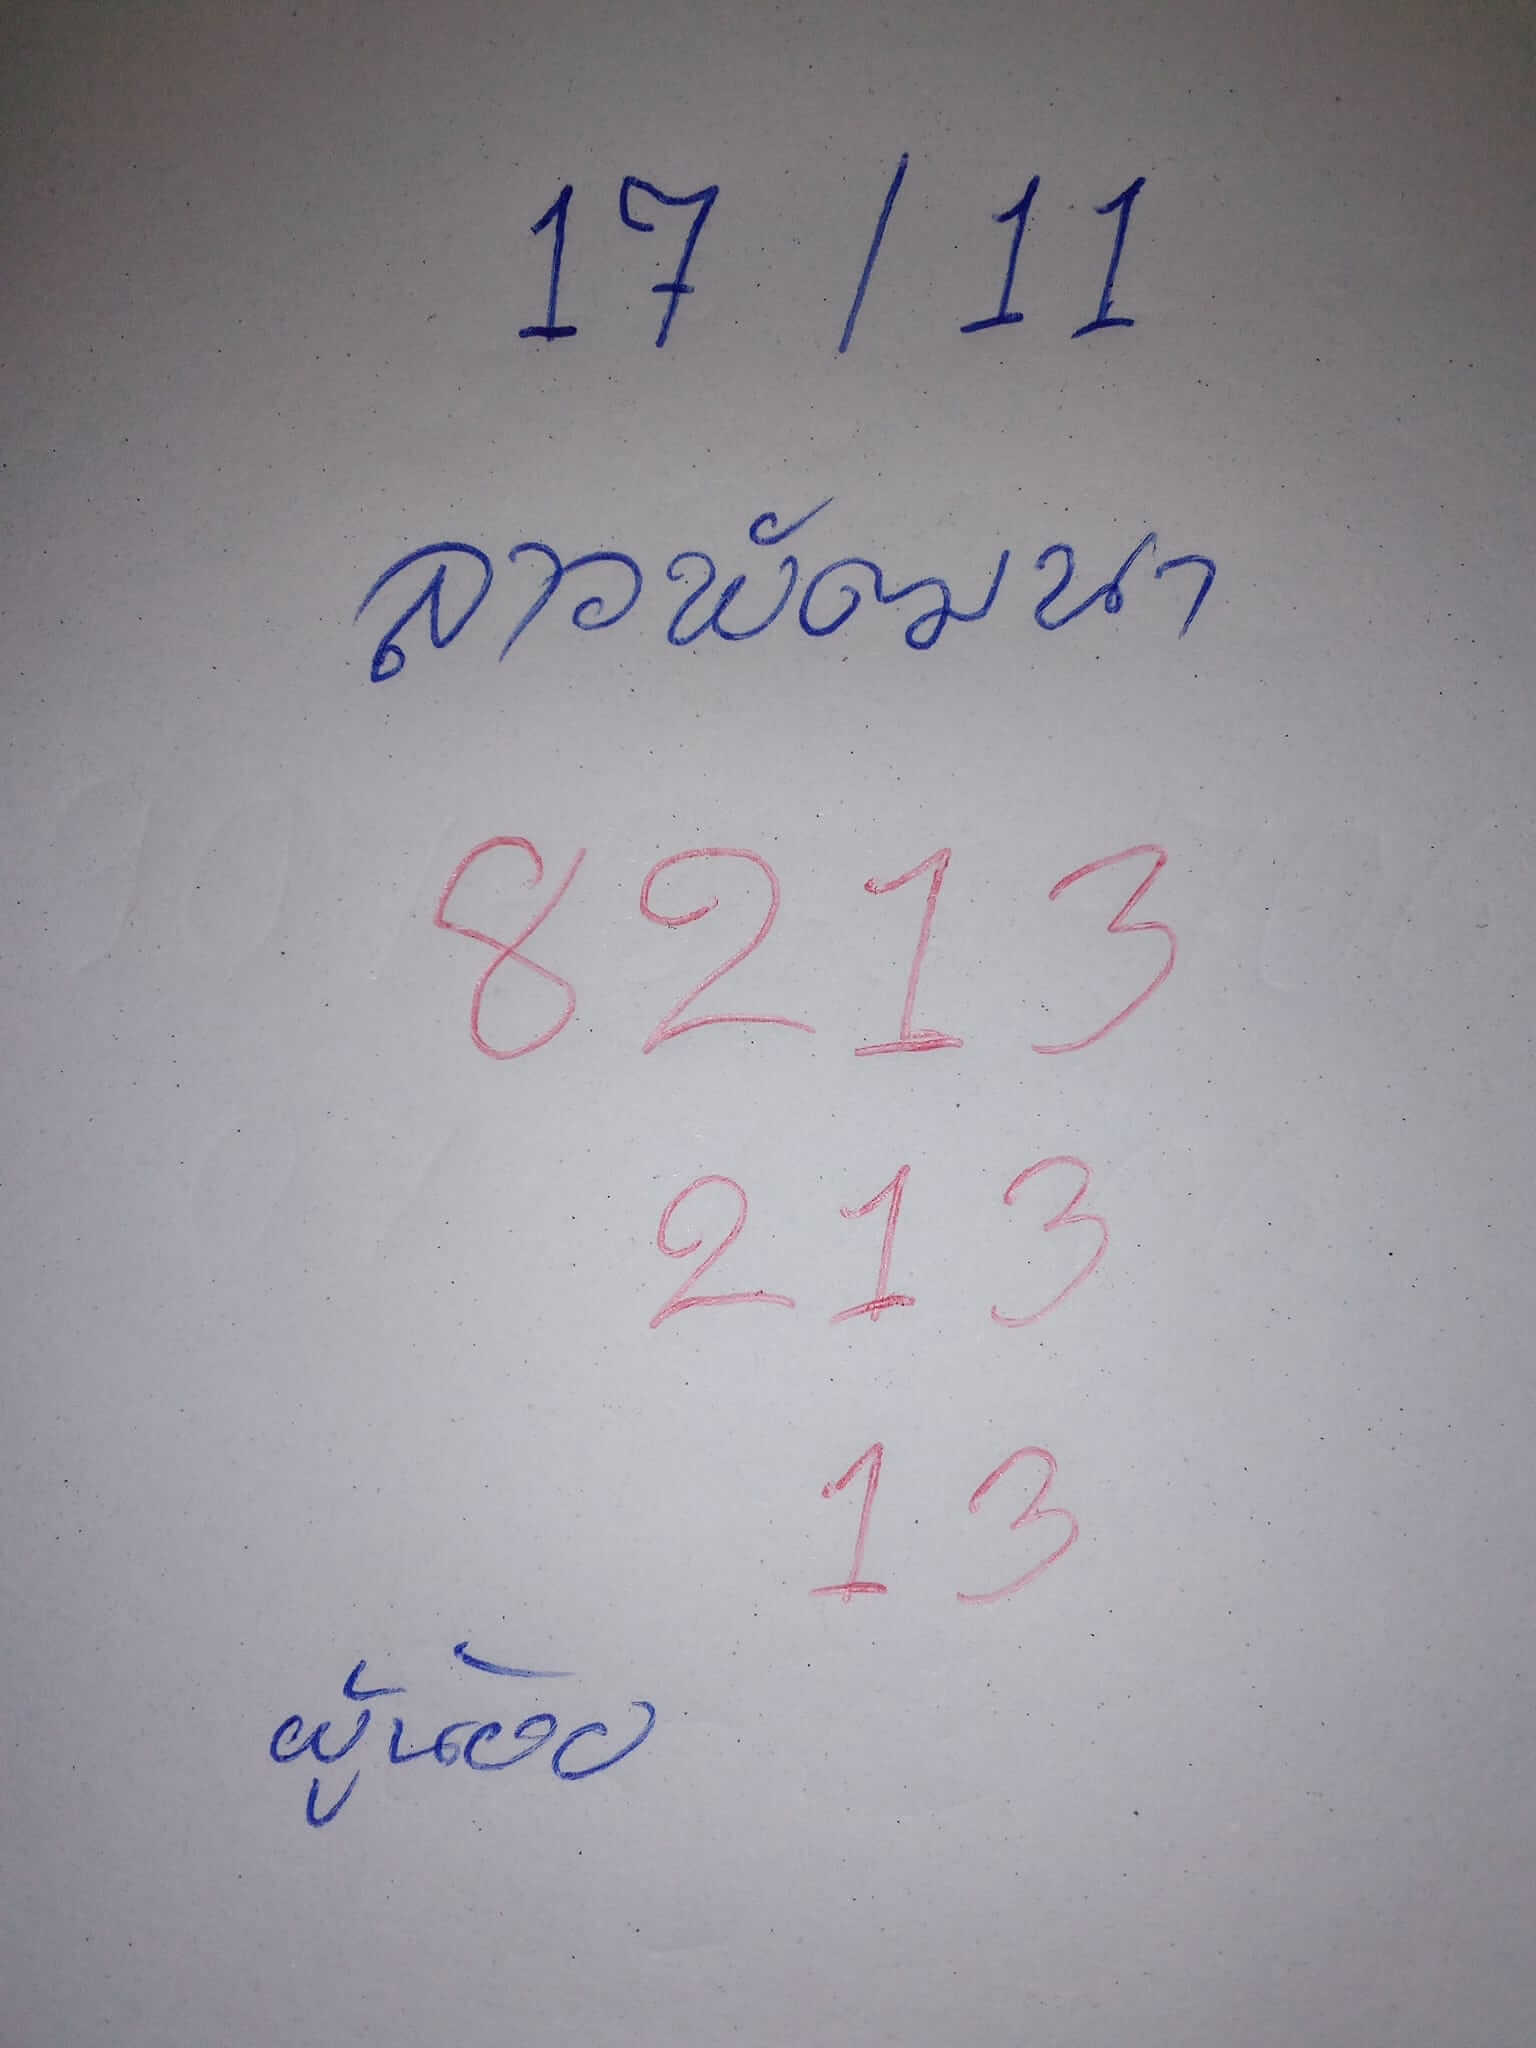 17/11
ลาวพัฒนา
8213
213
13
ผู้น้อย